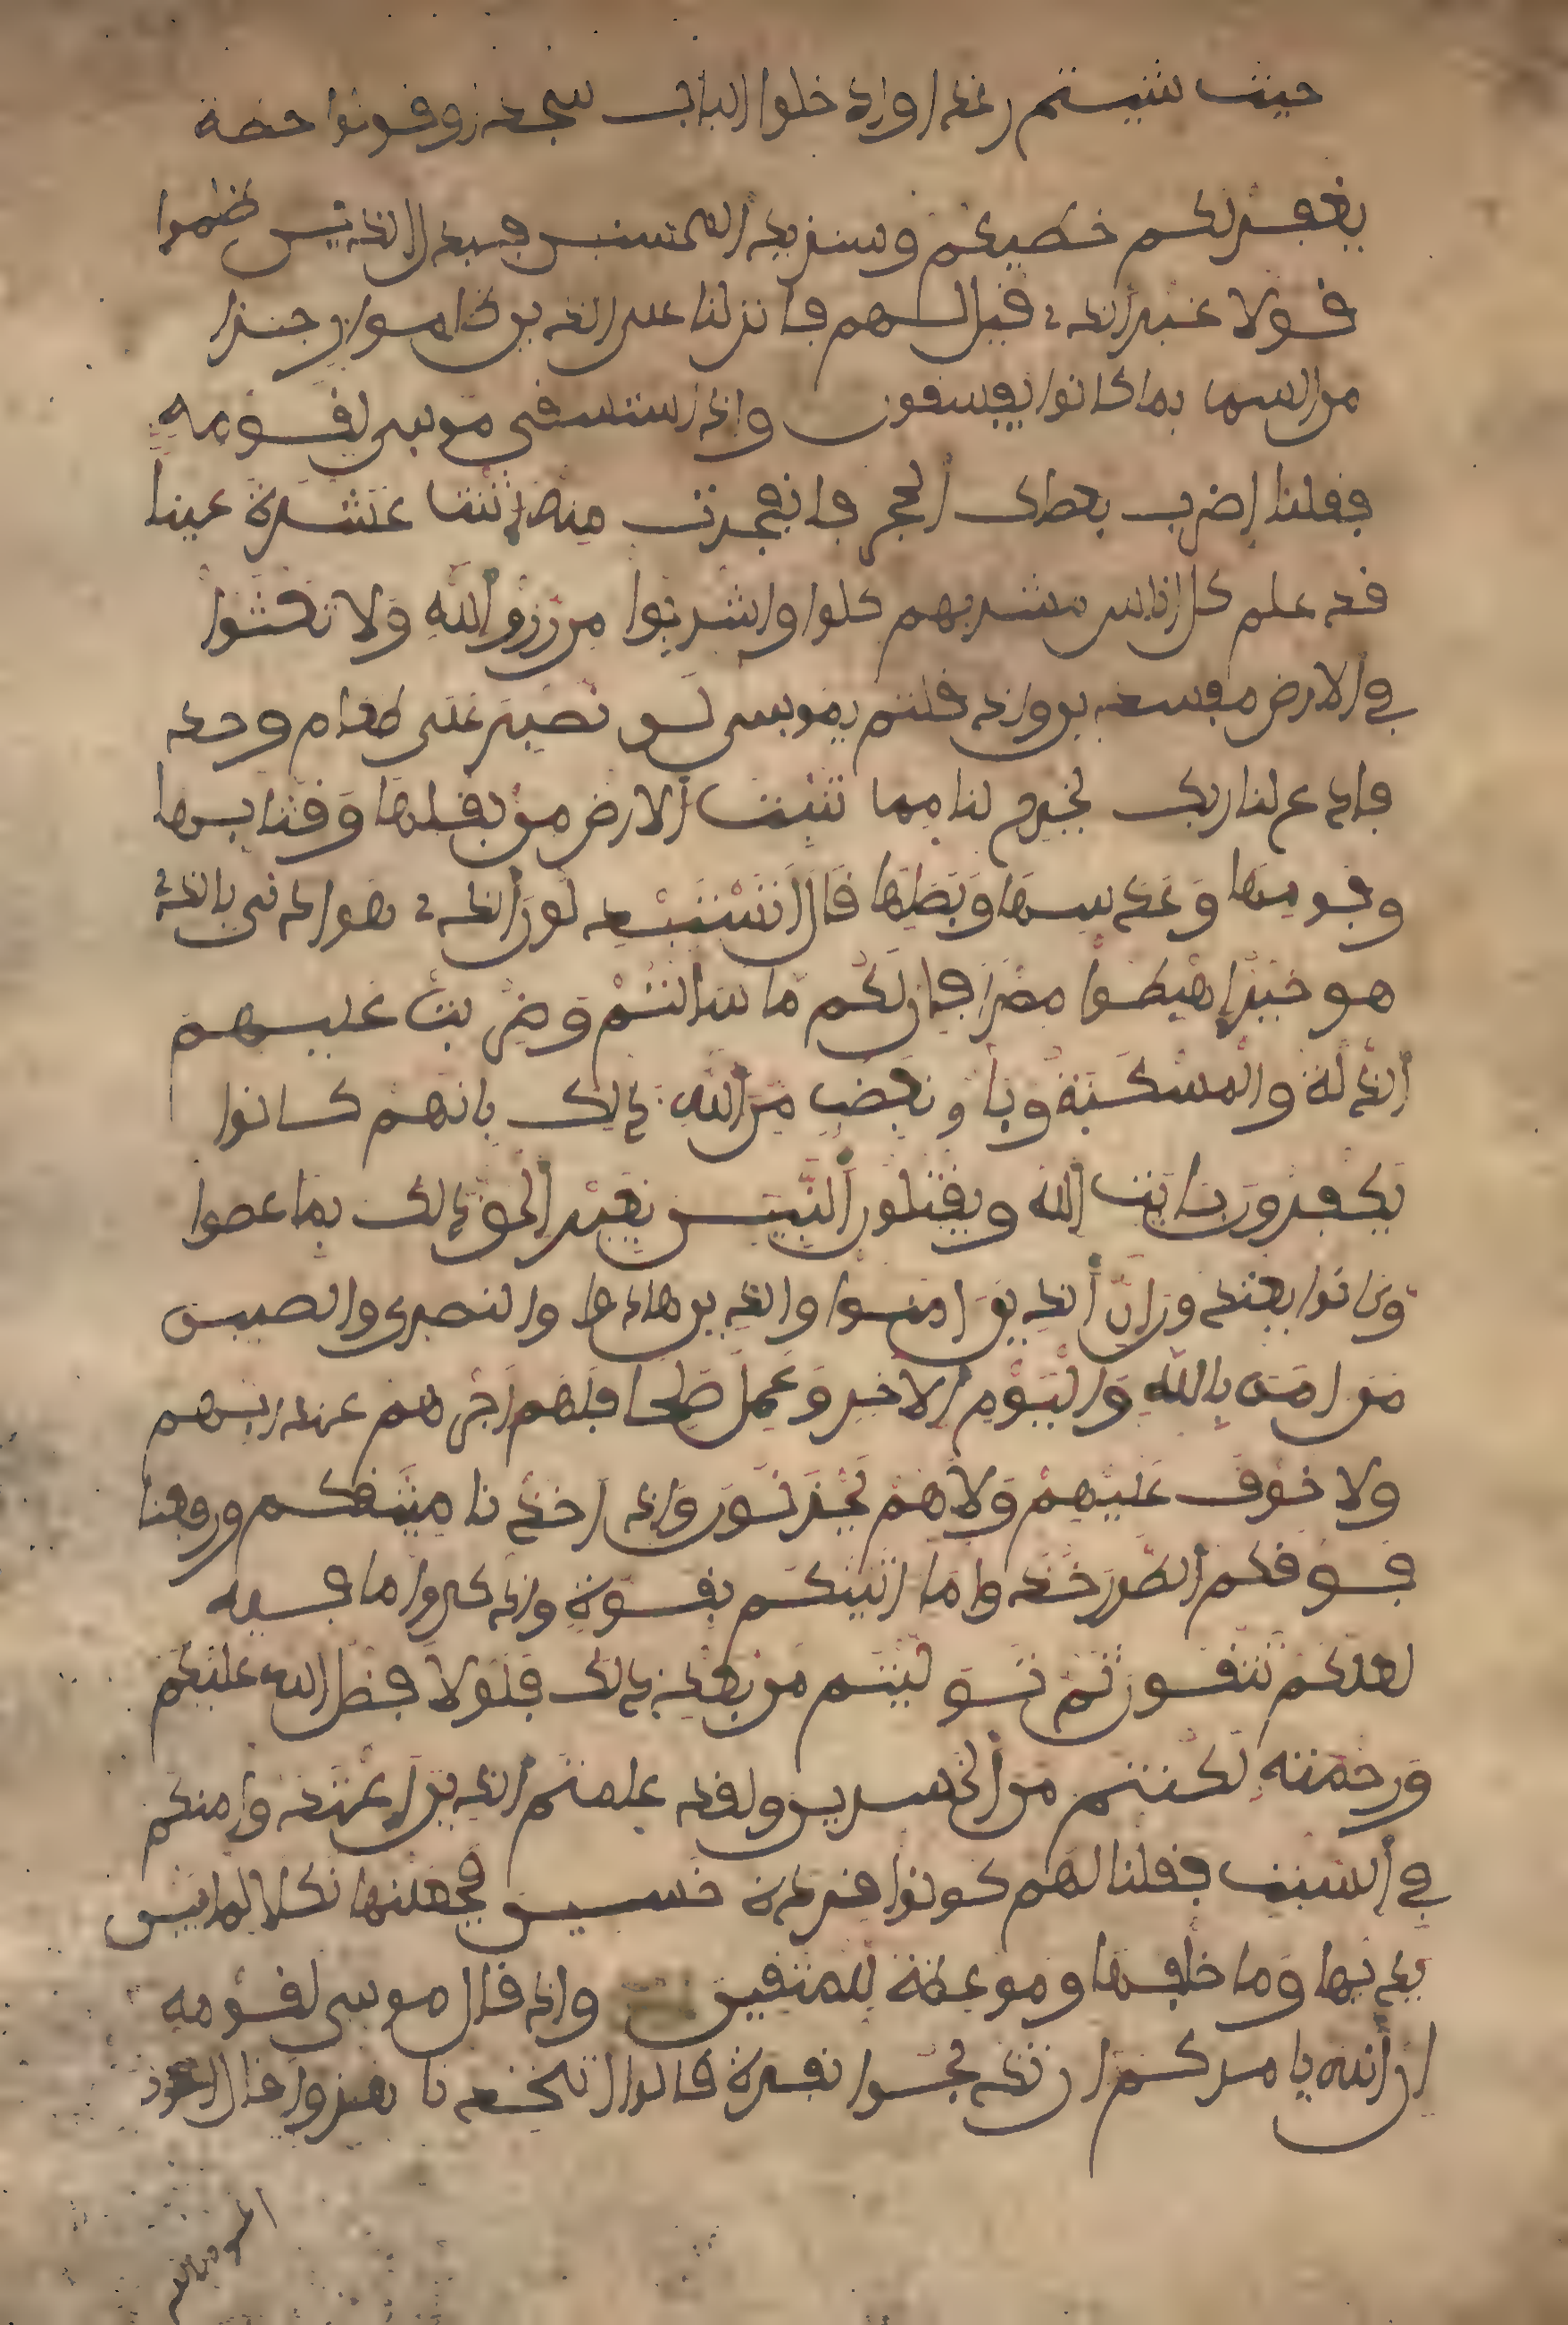 حيث شيتم رغدا وادخلوا الباب سجدا وقولوا حطة
يغفر لكم خطيكم وسنزيد المحسنين فبدل الذين ظلموا
قولا غير الذي قيل لهم فانزلنا على الذين ظلموا رجزا
من السما بما كانوا يفسقون واذ استسقى موسى لقومه
فقلنا اضرب بعصاك الحجر فانفجرت منه اثنتا عشرة عينا
قد علم كل اناس مشربهم كلوا واشربوا من رزق الله ولا تعثوا
في الارض مفسدين واذ قلتم يموسى لن نصبر على طعام وحد
فادع لنا ربك يخرج لنا مما تنبت الارض من بقلها وقثايها
وفومها وعدسها وبصلها قال اتستبدلون الذي هو ادنى بالذي
هو خير اهبطوا مصرا فان لكم ما سالتم وضربت عليهم
الذلة والمسكنة وباو بغضب من الله ذلك بانهم كانوا
يكفرون بايت الله ويقتلون النبيين بغير الحق ذلك بما عصوا
وكانوا يعتدون ان الذين امنوا والذين هادوا والنصرى والصبين
من امن بالله واليوم الاخر وعمل صلحا فلهم اجرهم عند ربهم
ولا خوف عليهم ولا هم يحزنون واذ اخذنا ميثقكم ورفعنا
فوقكم الطور خذوا ما اتينكم بقوة واذكروا ما فيه
لعلكم تتقون ثم توليتم من بعد ذلك فلولا فضل الله عليكم
ورحمته لكنتم من الخسرين ولقد علمتم الذين اعتدوا منكم
في السبت فقلنا لهم كونوا قردة خسين فجعلنها نكلا لما بين
يديها وما خلفها وموعظة للمتقين واذ قال موسى لقومه
ان الله يامركم ان تذبحوا بقرة قالوا اتتخذنا هزوا قال اعوذ